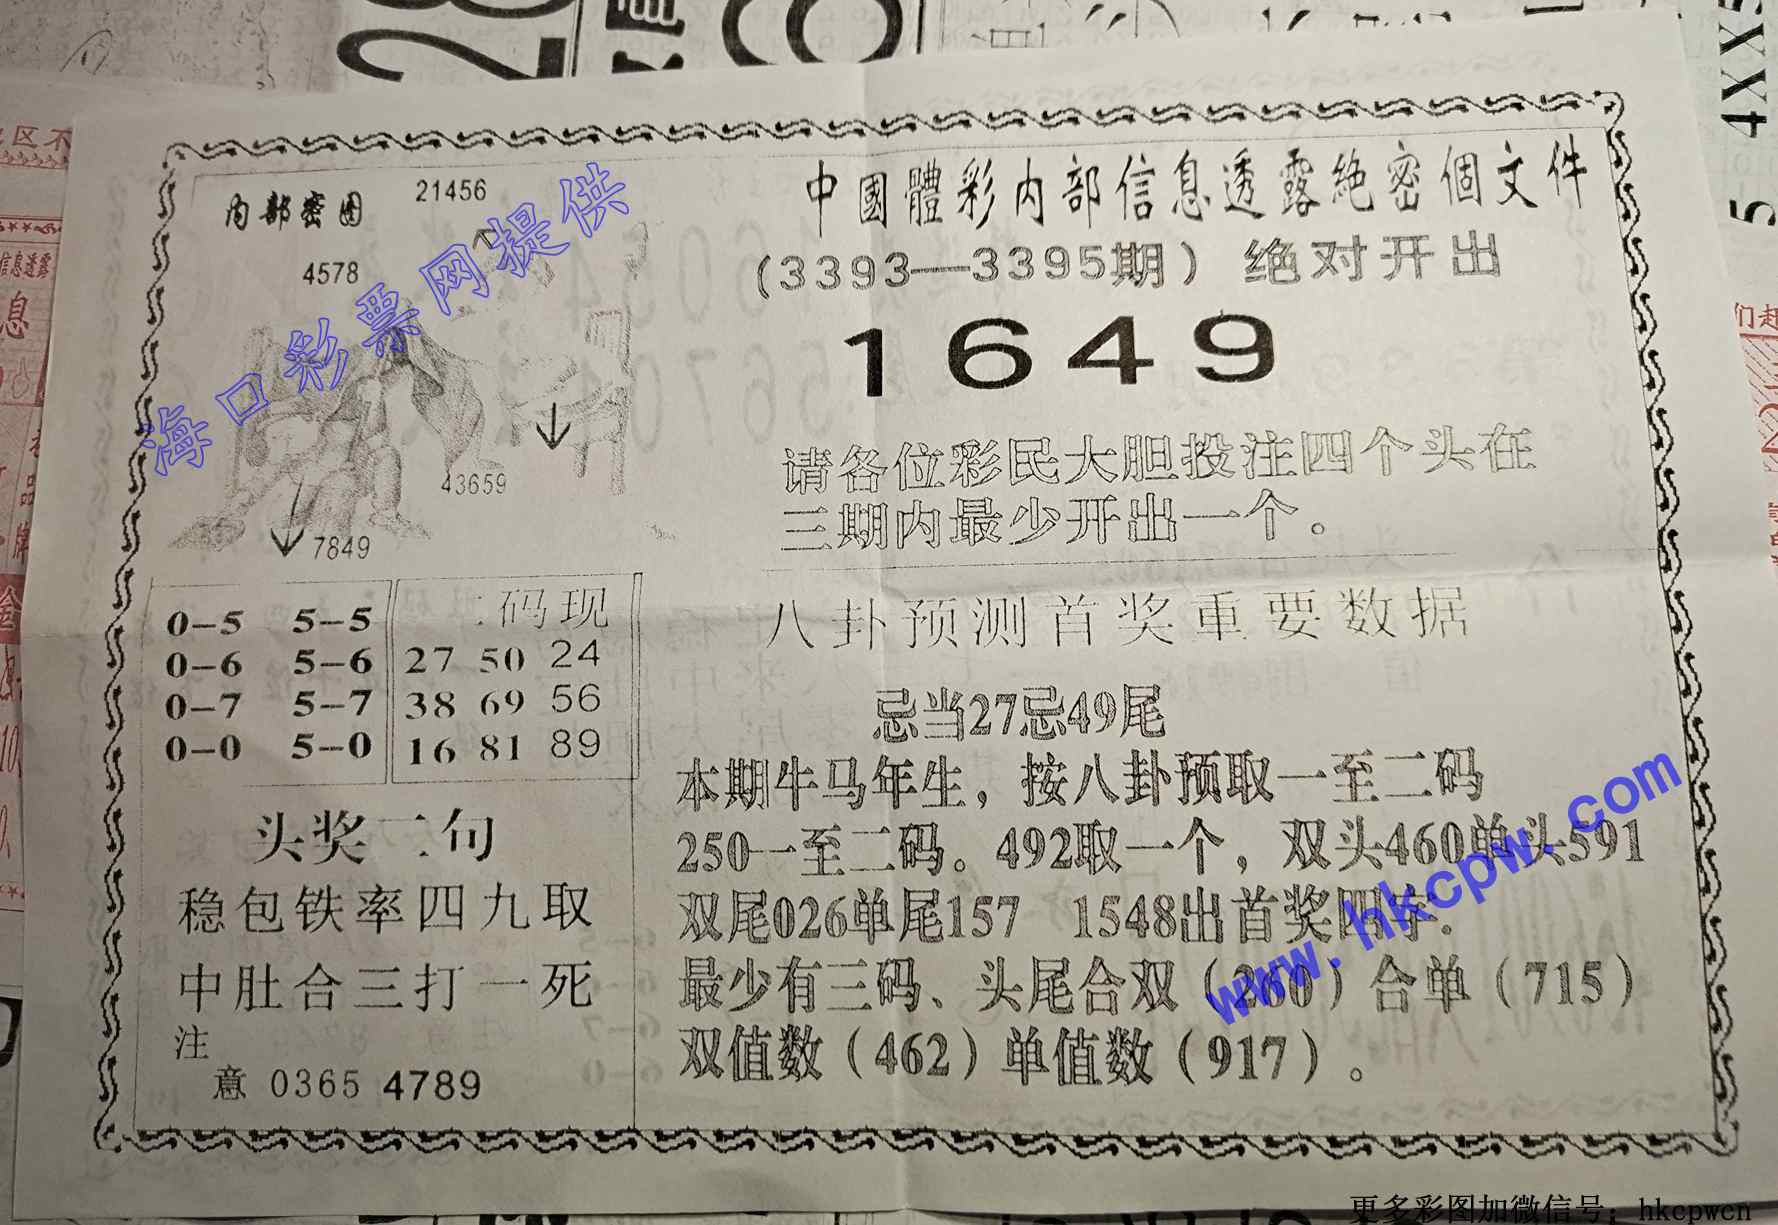 中國體彩内部信息透露絶密個文件
(3393—3395期) 绝对开出
1649
请各位彩民大胆投注四个头在
三期内最少开出一个。
内部密图
21456
4578
43659
7849
0-5 5-5
0-6 5-6
0-7 5-7
0-0 5-0
二码现
27 50 24
38 69 56
16 81 89
头奖二句
稳包铁率四九取
中肚合三打一死
注
意 0365 4789
八卦预测首奖重要数据
忌当27忌49尾
本期牛马年生，按八卦预取一至二码
250一至二码。492取一个，双头460单头591
双尾026单尾157 1548出首奖四字.
最少有三码、头尾合双（260）合单（715）
双值数（462）单值数（917）。
海口彩票网提供
www.hkcpw.com
更多彩图加微信号：hkcpwcn
4XX5
5